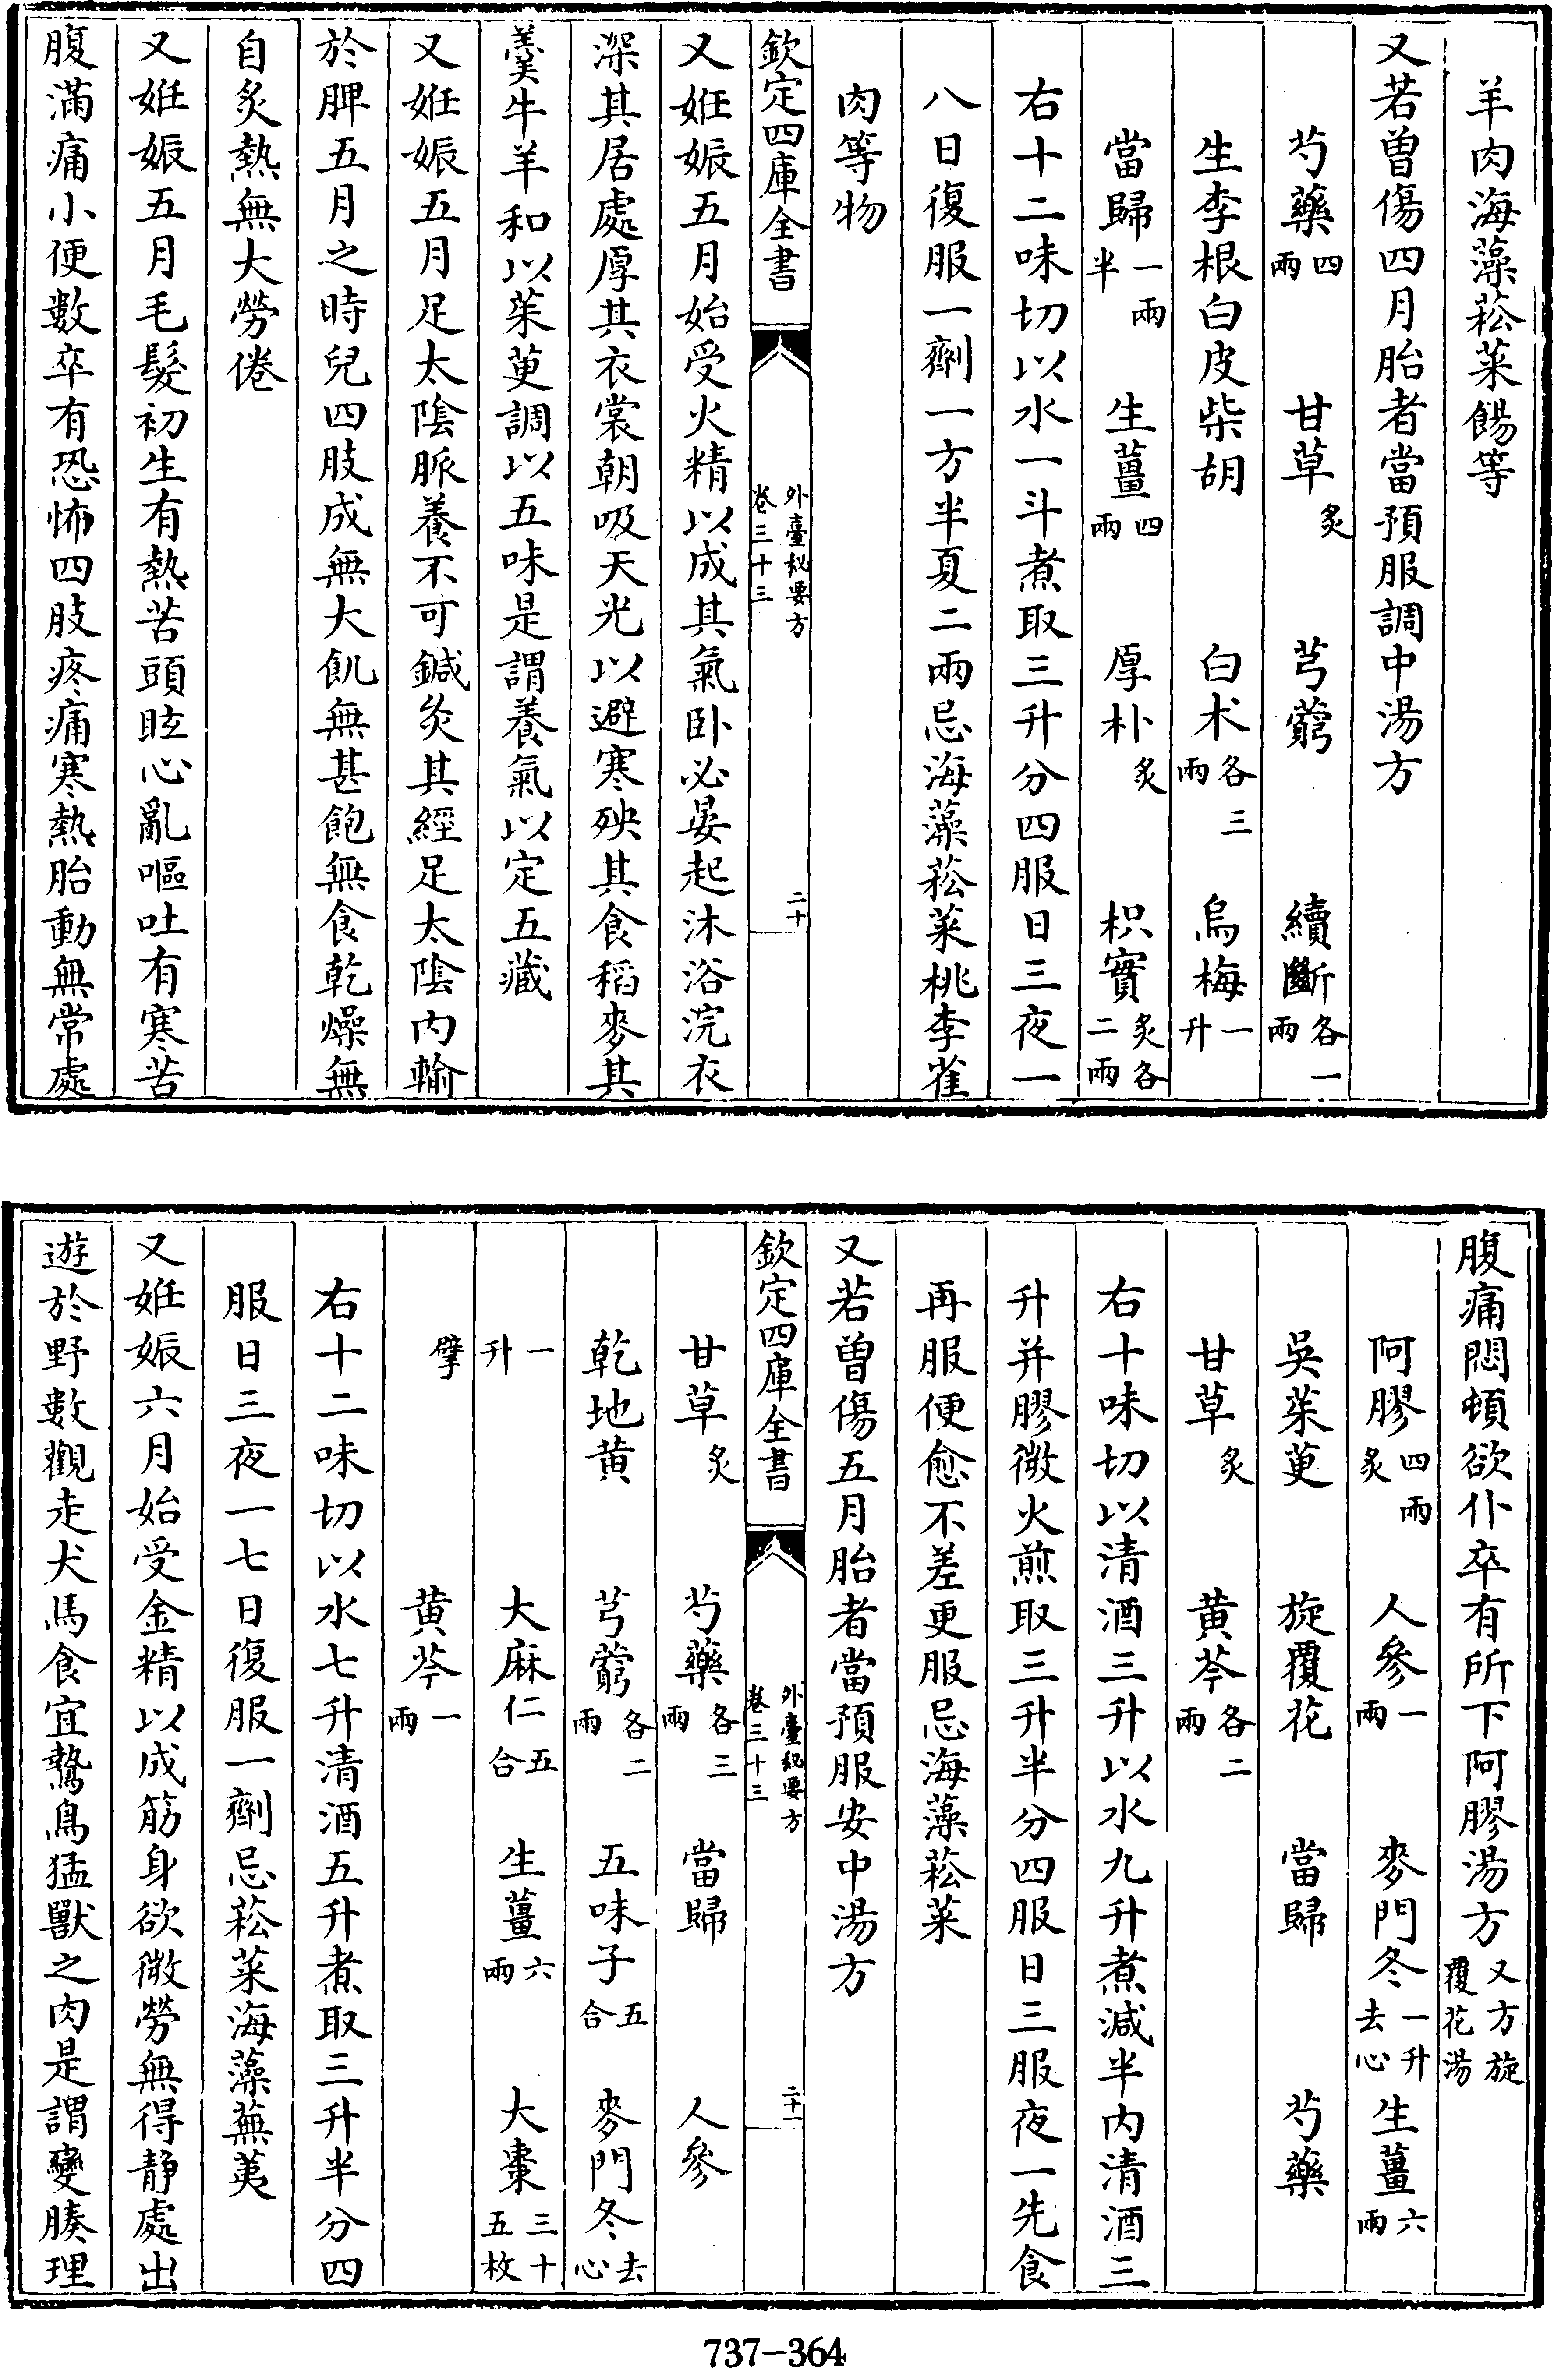 羊肉海藻菘菜餳等
又若曽傷四月胎者當預服調中湯方
芍藥四兩　甘草炙　芎藭　續斷各一兩
生李根白皮柴胡　白术各三兩　烏梅一升
當歸一兩半　生薑四兩　厚朴炙　枳實炙各二兩
右十二味切以水一斗煮取三升分四服日三夜一
八日復服一劑一方半夏二兩忌海藻菘菜桃李雀
肉等物
欽定四庫全書　外臺秘要方卷三十三　二十
又姙娠五月始受火精以成其氣卧必晏起沐浴浣衣
深其居處厚其衣裳朝吸天光以避寒殃其食稻麥其
羹牛羊和以茱萸調以五味是謂養氣以定五藏
又姙娠五月足太陰脈養不可鍼灸其經足太陰内輸
於脾五月之時兒四肢成無大飢無甚飽無食乾燥無
自炙熱無大勞倦
又姙娠五月毛髮初生有熱苦頭眩心亂嘔吐有寒苦
腹滿痛小便數卒有恐怖四肢疼痛寒熱胎動無常處
腹痛悶頓欲仆卒有所下阿膠湯方又方旋覆花湯
阿膠四兩炙　人參一兩　麥門冬一升去心　生薑六兩
吳茱萸　旋覆花　當歸　芍藥
甘草炙　黄芩各二兩
右十味切以清酒三升以水九升煮減半内清酒三
升并膠微火煎取三升半分四服日三服夜一先食
再服便愈不差更服忌海藻菘菜
又若曽傷五月胎者當預服安中湯方
欽定四庫全書　外臺秘要方卷三十三　二十一
甘草炙　芍藥各三兩　當歸　人參
乾地黄　芎藭各二兩　五味子五合　麥門冬去心
一升　大麻仁五合　生薑六兩　大棗三十五枚
擘　黄芩一兩
右十二味切以水七升清酒五升煮取三升半分四
服日三夜一七日復服一劑忌菘菜海藻蕪荑
又姙娠六月始受金精以成筋身欲微勞無得静處出
遊於野數觀走犬馬食宜鷙鳥猛獸之肉是謂變腠理
737-364